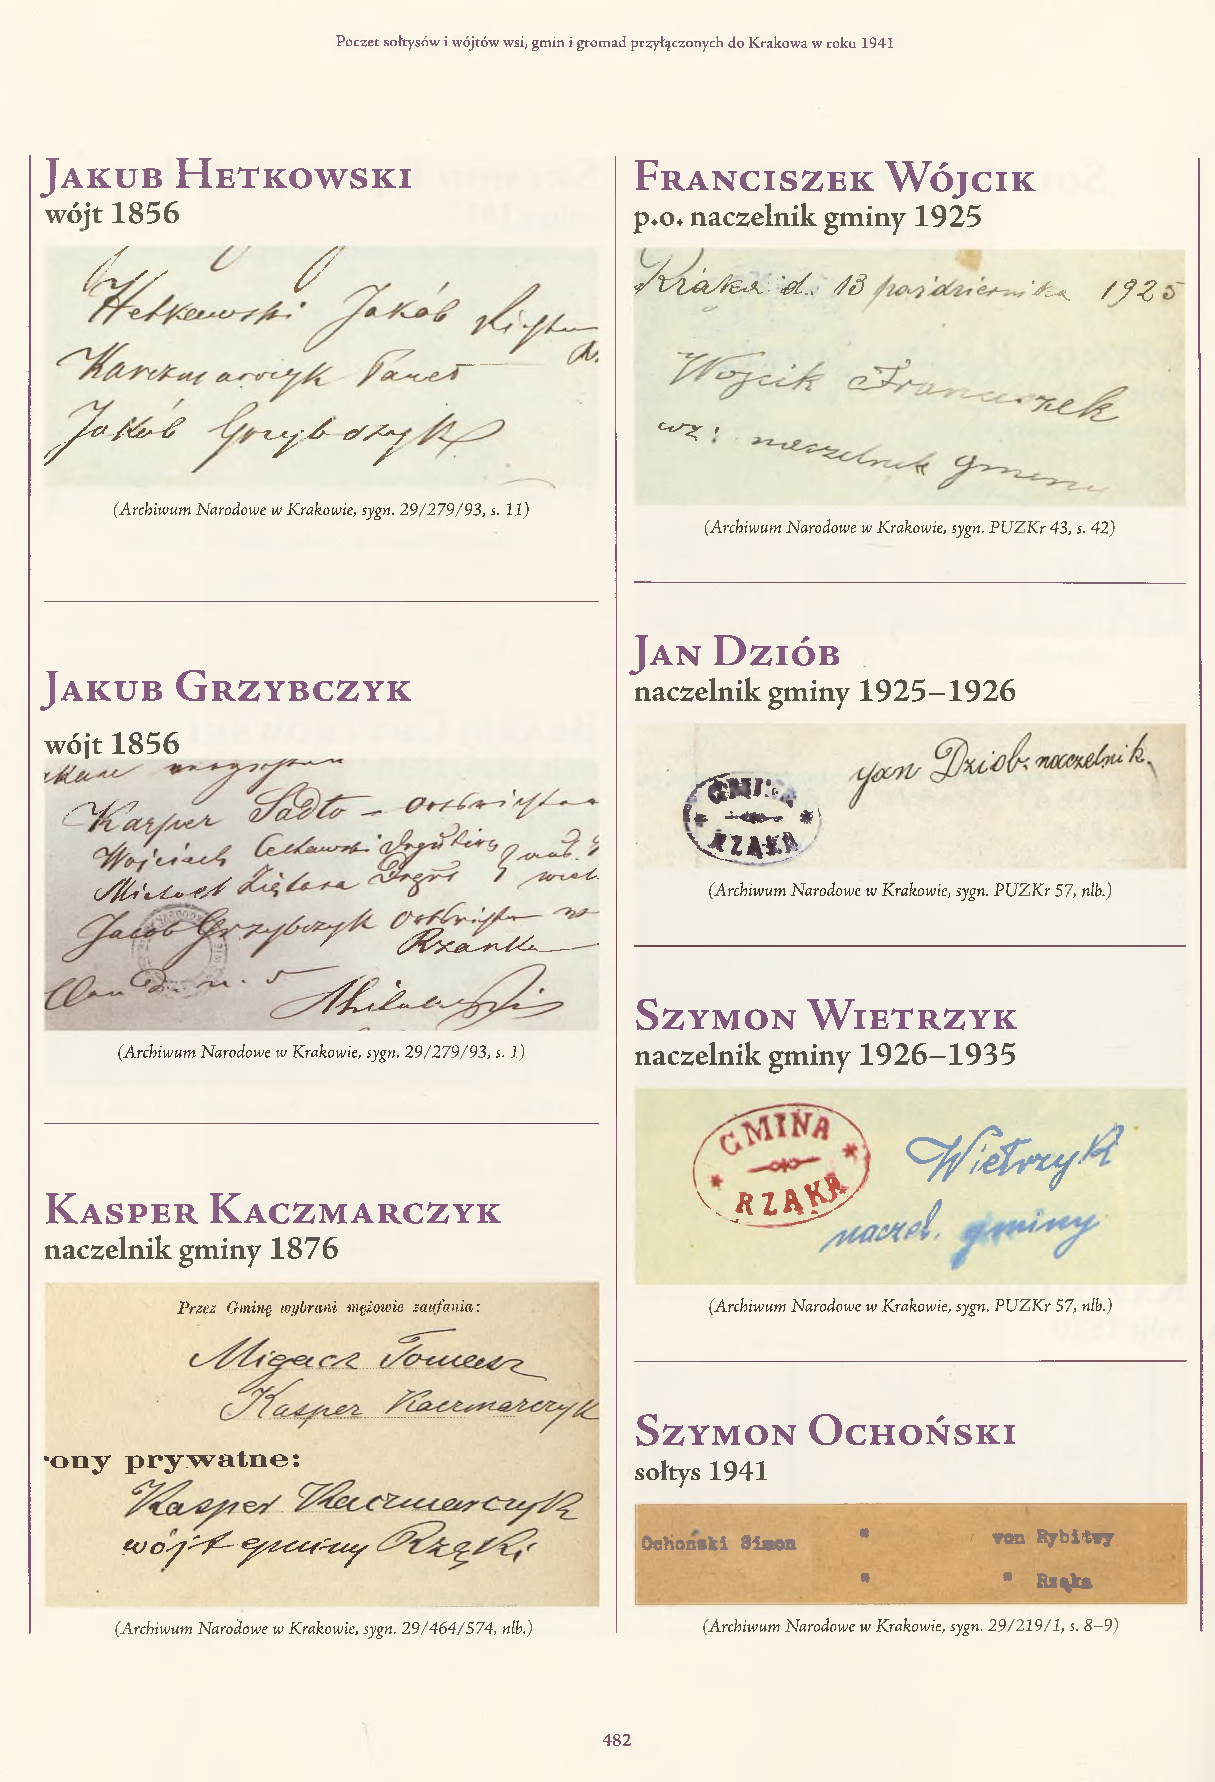 Poczet sołtysów i wójtów wsi, gmin i gromad przyłączonych do Krakowa w roku 1941
Jakub Hetkowski
wójt 1856
Hetkowski Jakób
Karczmarczyk Paweł
Jakób Grzybczyk
(Archiwum Narodowe w Krakowie, sygn. 29/279/93, s. 11)
Jakub Grzybczyk
wójt 1856
Kasper Sadło – Ortsrichter
Wojciech
Michael Ziętara
Jacob Grzybczyk Ortsrichter
Rzanka
(Archiwum Narodowe w Krakowie, sygn. 29/279/93, s. 1)
Kasper Kaczmarczyk
naczelnik gminy 1876
Przez Gminę wybrani mężowie zaufania:
Migacz Tomasz
Kasper Kaczmarczyk
rony prywatne:
Kasper Kaczmarczyk
wójt gminy Rząki
(Archiwum Narodowe w Krakowie, sygn. 29/464/574, nlb.)
Franciszek Wójcik
p.o. naczelnik gminy 1925
Rżaka d. 13 października 1925
Wojcik Franciszek
wz: naczelnik gminy
(Archiwum Narodowe w Krakowie, sygn. PUZKr 43, s. 42)
Jan Dziób
naczelnik gminy 1925–1926
Jan Dziob naczelnik.
GMINA
RZĄKA
(Archiwum Narodowe w Krakowie, sygn. PUZKr 57, nlb.)
Szymon Wietrzyk
naczelnik gminy 1926–1935
GMINA
RZĄKA
Wietrzyk
naczel. gminy
(Archiwum Narodowe w Krakowie, sygn. PUZKr 57, nlb.)
Szymon Ochoński
sołtys 1941
Ochoński Simon " von Rybitwy
" " Rząka
(Archiwum Narodowe w Krakowie, sygn. 29/219/1, s. 8–9)
482